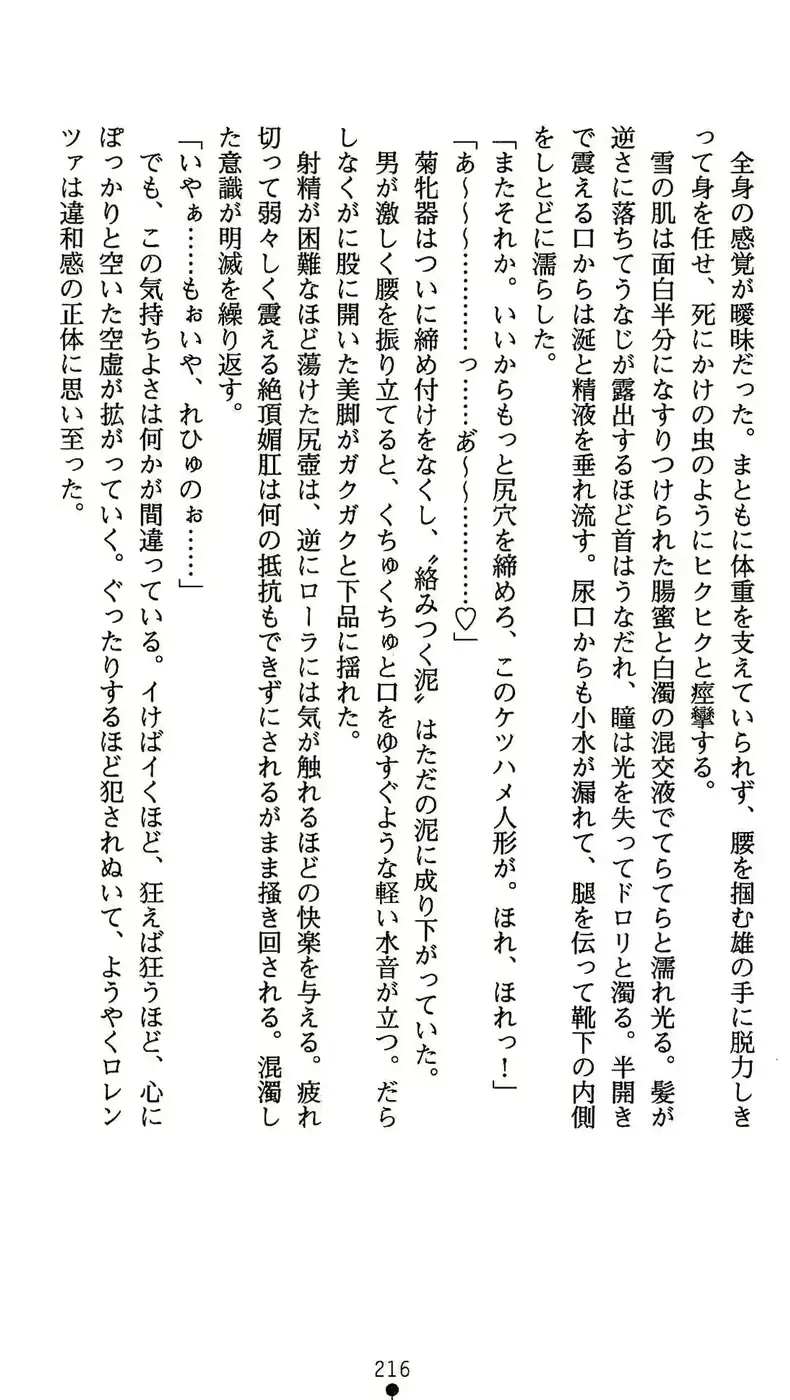 全身の感覚が曖昧だった。まともに体重を支えていられず、腰を掴む雄の手に脱力しき
って身を任せ、死にかけの虫のようにヒクヒクと痙攣する。
雪の肌は面白半分になすりつけられた腸蜜と白濁の混交液でてらてらと濡れ光る。髪が
逆さに落ちてうなじが露出するほど首はうなだれ、瞳は光を失ってドロリと濁る。半開き
で震える口からは涎と精液を垂れ流す。尿口からも小水が漏れて、腿を伝って靴下の内側
をしとどに濡らした。
「またそれか。いいからもっと尻穴を締めろ、このケツハメ人形が。ほれ、ほれっ！」
「あ～～～…………っ……あ゛～～…………♡」
菊牝器はついに締め付けをなくし、〝絡みつく泥〟はただの泥に成り下がっていた。
男が激しく腰を振り立てると、くちゅくちゅと口をゆすぐような軽い水音が立つ。だら
しなくがに股に開いた美脚がガクガクと下品に揺れた。
射精が困難なほど蕩けた尻壺は、逆にローラには気が触れるほどの快楽を与える。疲れ
切って弱々しく震える絶頂媚肛は何の抵抗もできずにされるがまま掻き回される。混濁し
た意識が明滅を繰り返す。
「いやぁ……もぉいや、れひゅのぉ……」
でも、この気持ちよさは何かが間違っている。イけばイくほど、狂えば狂うほど、心に
ぽっかりと空いた空虚が拡がっていく。ぐったりするほど犯されぬいて、ようやくロレン
ツァは違和感の正体に思い至った。
216